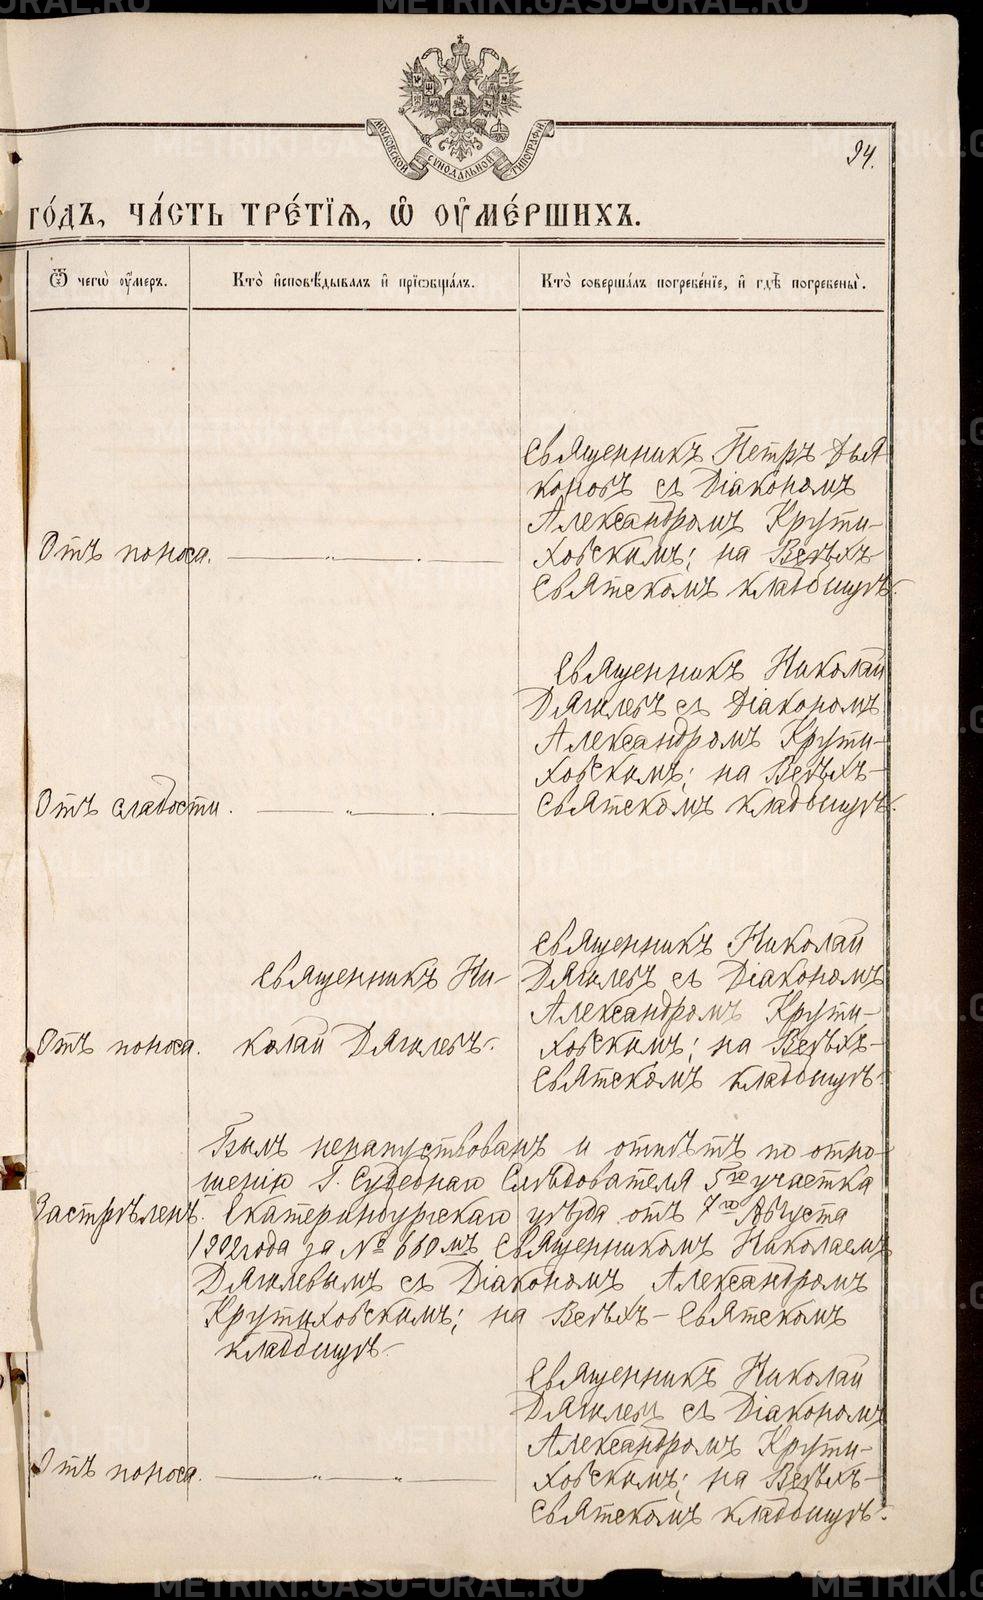 METRIKI.GASO-URAL.RU
МОСКОВСКОЙ СУНОДАЛЬНОЙ ТИПОГРАФІИ
94.
го́дъ, ча́сть тре́тїѧ, ѡ҆ ᲂу҆ме́ршихъ.
Ѿ чегѡ̀ ᲂу҆́меръ.
Кто̀ и҆сповѣ́дывалъ и҆ прїѡбща́лъ.
Кто̀ соверша́лъ погребе́нїе, и҆ гдѣ̀ погребены̀.
Священникъ Петръ Дья
коновъ съ Діакономъ
Александромъ Крути-
Отъ поноса.
ховскимъ; на Всѣхъ-
Святскомъ кладбищѣ.
Священникъ Николай
Дягилевъ съ Діакономъ
Александромъ Крути-
ховскимъ; на Всѣхъ-
Отъ слабости.
Святскомъ кладбищѣ.
Священникъ Николай
Священникъ Ни-
Дягилевъ съ Діакономъ
Александромъ Крути-
Отъ поноса.
колай Дягилевъ.
ховскимъ; на Всѣхъ-
Святскомъ кладбищѣ.
Былъ ненапутствованъ и отпѣтъ по отно-
шенію Г. Судебнаго Слѣдователя 5го участка
Застрѣленъ.
Екатеринбургскаго уѣзда отъ 7го Августа
1902 года за № 660мъ Священникомъ Николаемъ
Дягилевымъ съ Діакономъ Александромъ
Крутиховскимъ; на Всѣхъ-Святскомъ
кладбищѣ.
Священникъ Николай
Дягилевъ съ Діакономъ
Александромъ Крути-
Отъ поноса.
ховскимъ; на Всѣхъ-
Святскомъ кладбищѣ.